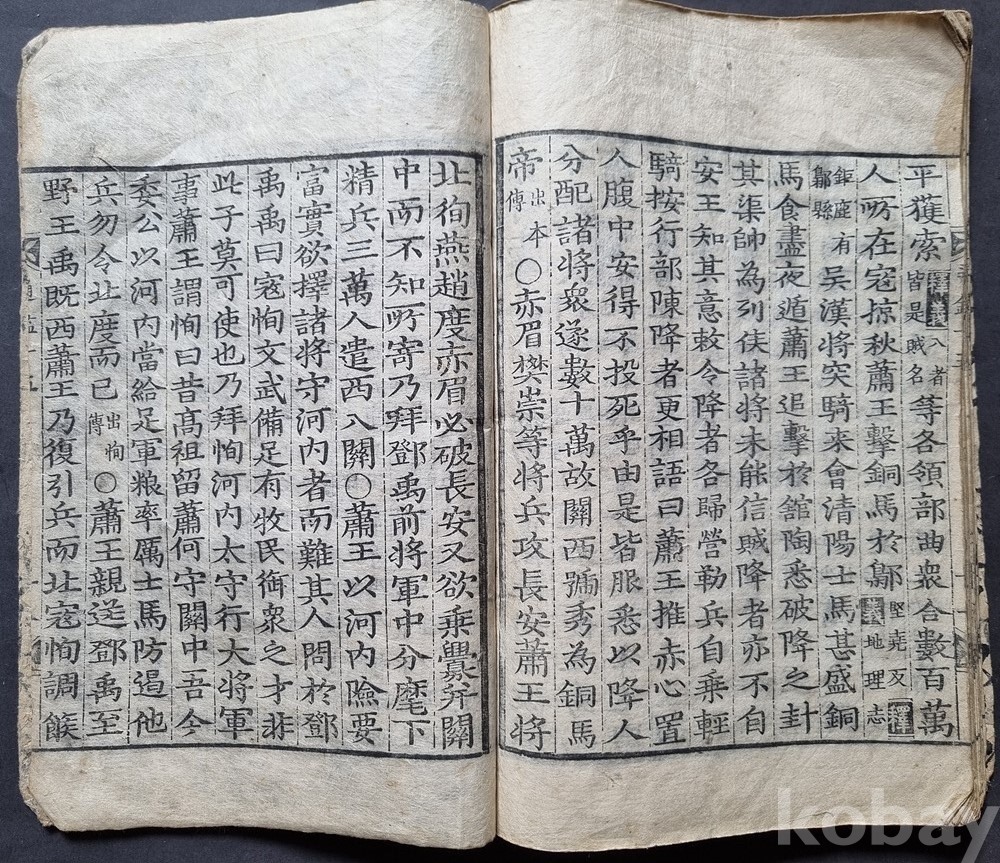 平獲索皆是賊名等各領部曲衆合數百萬
八者
人所在寇掠秋蕭王擊銅馬於鄡堅堯反地理志
鉅鹿有鄡縣吳漢將突騎來會清陽士馬甚盛銅
馬食盡夜遁蕭王追擊於舘陶悉破降之封
其渠帥為列侯諸將未能信賊降者亦不自
安王知其意敕令降者各歸營勒兵自乗輕
騎按行部陳降者更相語曰蕭王推赤心置
人腹中安得不投死乎由是皆服悉以降人
分配諸將衆遂數十萬故關西號秀為銅馬
帝出本傳〇赤眉樊崇等將兵攻長安蕭王將
北徇燕趙度赤眉必破長安又欲乗釁并關
中而不知所寄乃拜鄧禹前將軍中分麾下
精兵三萬人遣西入關〇蕭王以河内險要
富實欲擇諸將守河内者而難其人問於鄧
禹禹曰寇恂文武備足有牧民御衆之才非
此子莫可使也乃拜恂河内太守行大將軍
事蕭王謂恂曰昔高祖留蕭何守關中吾今
委公以河内當給足軍粮率厲士馬防遏他
兵勿令北度而已出恂傳〇蕭王親送鄧禹至
野王禹既西蕭王乃復引兵而北寇恂調餱
kobay